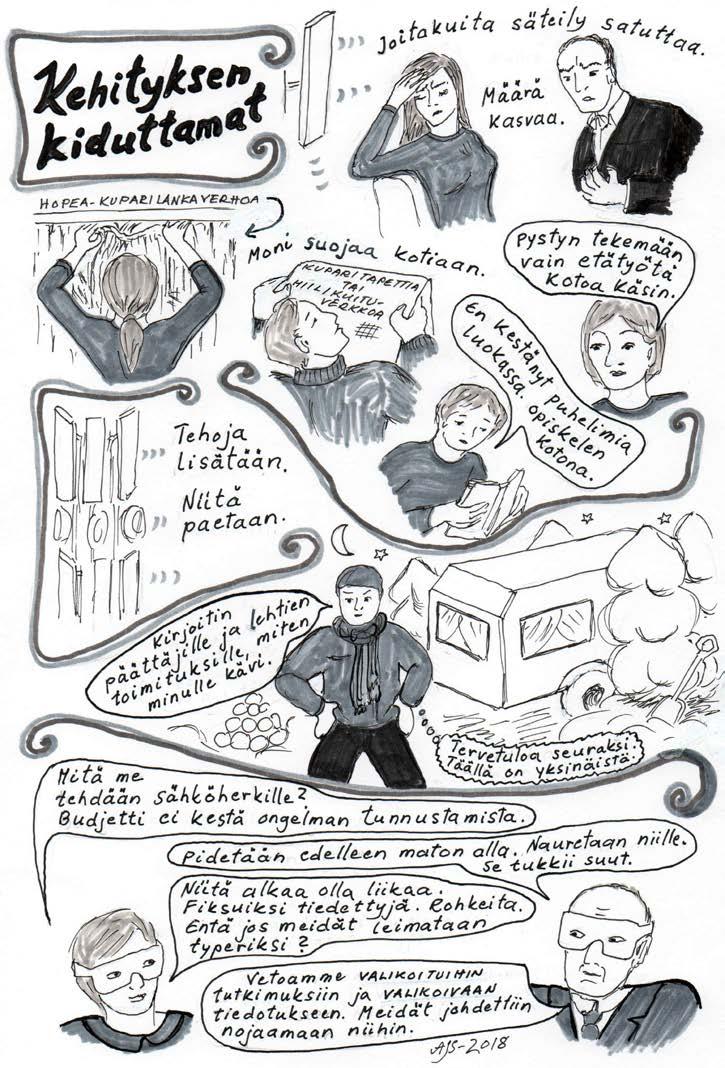 Kehityksen
kiduttamat
Joitakuita säteily satuttaa.
Määrä
kasvaa.
HOPEA-KUPARILANKAVERHOA
Moni suojaa kotiaan.
KUPARITAPETTIA
TAI
HIILIKUITU-
VERKKOA
Pystyn tekemään
vain etätyötä
kotoa käsin.
En kestänyt puhelimia
luokassa. Opiskelen
kotona.
Tehoja
lisätään.
Niitä
paetaan.
Kirjoitin
päättäjille ja lehtien
toimituksille, miten
minulle kävi.
Tervetuloa seuraksi.
Täällä on yksinäistä.
Mitä me
tehdään sähköherkille?
Budjetti ei kestä ongelman tunnustamista.
Pidetään edelleen maton alla. Nauretaan niille.
Se tukkii suut.
Niitä alkaa olla liikaa.
Fiksuiksi tiedettyjä. Rohkeita.
Entä jos meidät leimataan
typeriksi?
Vetoamme VALIKOITUIHIN
tutkimuksiin ja VALIKOIVAAN
tiedotukseen. Meidät johdettiin
nojaamaan niihin.
AJS-2018